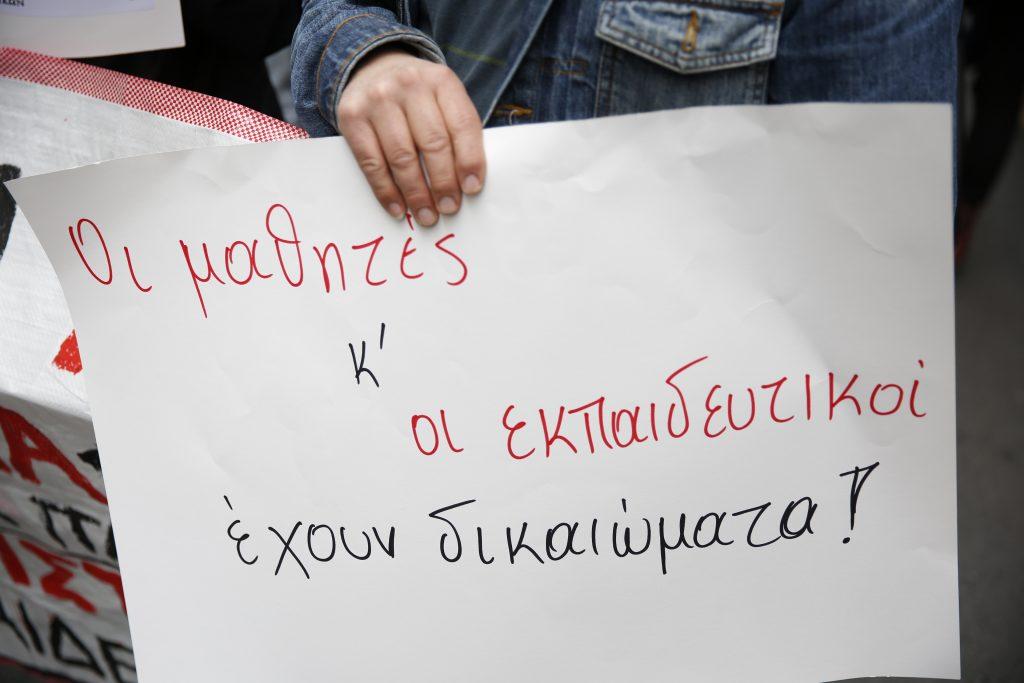 Οι μαθητές
κ'
οι εκπαιδευτικοί
έχουν δικαιώματα!